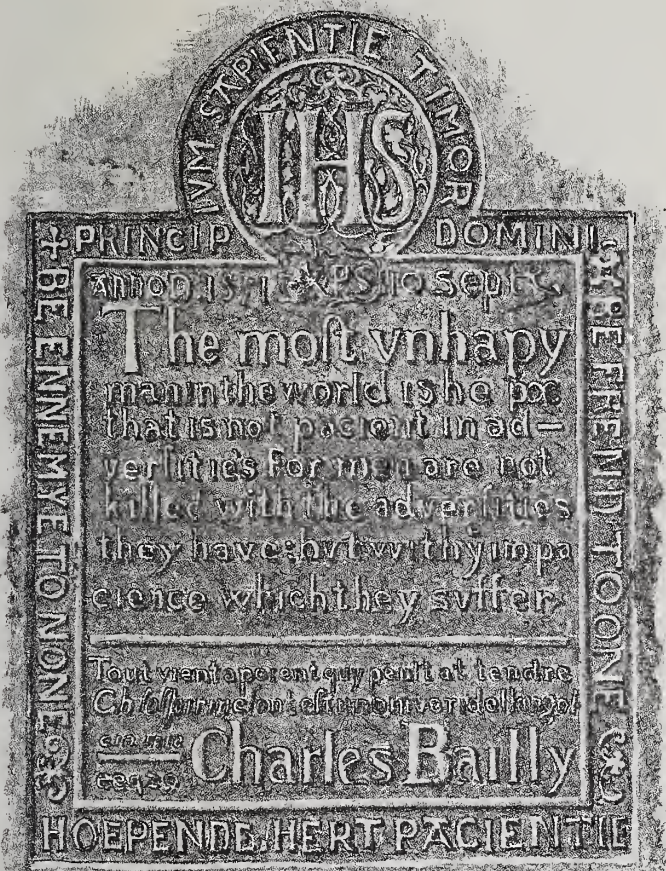 PRINCIP IVM SAPIENTIE TIMOR DOMINI
IHS
BE ENNEMYE TO NONE
BE FREND TO ONE
ANNO D 10 Sept
The most vnhapy
man in the world is he
that is not pacient in ad-
versities For men are not
killed with the adversities
they have: bvt with y impa
cience which they svffer
Tout vient apoient quy peult attendre
Charles Bailly
HOEPENDE HERT PACIENTIE